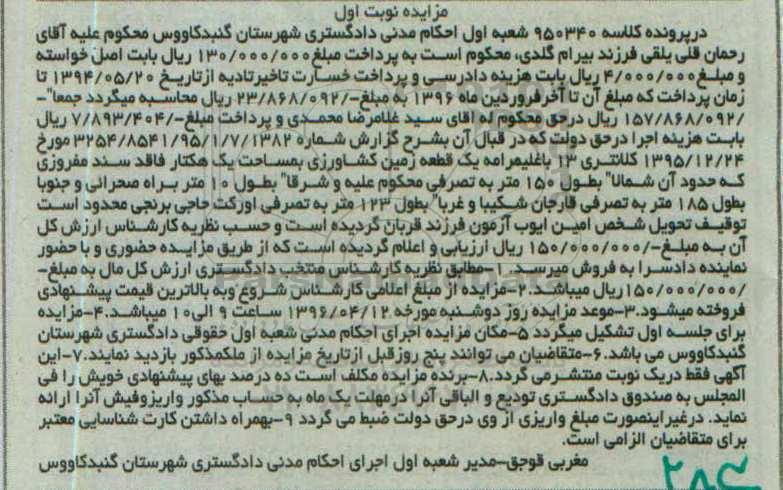 مزایده نوبت اول
درپرونده کلاسه ۹۵۰۳۴۰ شعبه اول احکام مدنی دادگستری شهرستان گنبدکاووس محکوم علیه آقای
رحمان قلی یلقی فرزند بیرام گلدی، محکوم است به پرداخت مبلغ ۱۳۰/۰۰۰/۰۰۰ ریال بابت اصل خواسته
و مبلغ ۴/۰۰۰/۰۰۰ ریال بابت هزینه دادرسی و پرداخت خسارت تاخیرتادیه ازتاریخ ۱۳۹۴/۰۵/۲۰ تا
زمان پرداخت که مبلغ آن تا آخرفروردین ماه ۱۳۹۶ به مبلغ-/۲۳/۸۶۸/۰۹۲ ریال محاسبه میگردد جمعا"-
/۱۵۷/۸۶۸/۰۹۲ ریال درحق محکوم له آقای سید غلامرضا محمدی و پرداخت مبلغ-/۷/۸۹۳/۴۰۴ ریال
بابت هزینه اجرا درحق دولت که در قبال آن بشرح گزارش شماره ۳۲۵۴/۸۵۴۱/۹۵/۱/۷/۱۳۸۲ مورخ
۱۳۹۵/۱۲/۲۴ کلانتری ۱۳ باغلیمرامه یک قطعه زمین کشاورزی بمساحت یک هکتار فاقد سند مفروزی
که حدود آن شمالا" بطول ۱۵۰ متر به تصرفی محکوم علیه و شرقا" بطول ۱۰ متر براه صحرائی و جنوبا
بطول ۱۸۵ متر به تصرفی قارجان شکیبا و غربا" بطول ۱۲۳ متر به تصرفی اورکت حاجی برنجی محدود است
توقیف تحویل شخص امین ایوب آزمون فرزند قربان گردیده است و حسب نظریه کارشناس ارزش کل
آن به مبلغ-/۱۵۰/۰۰۰/۰۰۰ ریال ارزیابی و اعلام گردیده است که از طریق مزایده حضوری و با حضور
نماینده دادسرا به فروش میرسد. ۱-مطابق نظریه کارشناس منتخب دادگستری ارزش کل مال به مبلغ-
/۱۵۰/۰۰۰/۰۰۰ریال میباشد.۲-مزایده از مبلغ اعلامی کارشناس شروع وبه بالاترین قیمت پیشنهادی
فروخته میشود.۳-موعد مزایده روز دوشنبه مورخه ۱۳۹۶/۰۴/۱۲ ساعت ۹ الی۱۰ میباشد.۴-مزایده
برای جلسه اول تشکیل میگردد ۵-مکان مزایده اجرای احکام مدنی شعبه اول حقوقی دادگستری شهرستان
گنبدکاووس می باشد.۶-متقاضیان می توانند پنج روزقبل ازتاریخ مزایده از ملکمذکور بازدید نمایند.۷-این
آگهی فقط دریک نوبت منتشرمی گردد.۸-برنده مزایده مکلف است ده درصد بهای پیشنهادی خویش را فی
المجلس به صندوق دادگستری تودیع و الباقی آنرا درمهلت یک ماه به حساب مذکور واریزوفیش آنرا ارائه
نماید. درغیراینصورت مبلغ واریزی از وی درحق دولت ضبط می گردد ۹-بهمراه داشتن کارت شناسایی معتبر
برای متقاضیان الزامی است.
مغربی قوجق-مدیر شعبه اول اجرای احکام مدنی دادگستری شهرستان گنبدکاووس